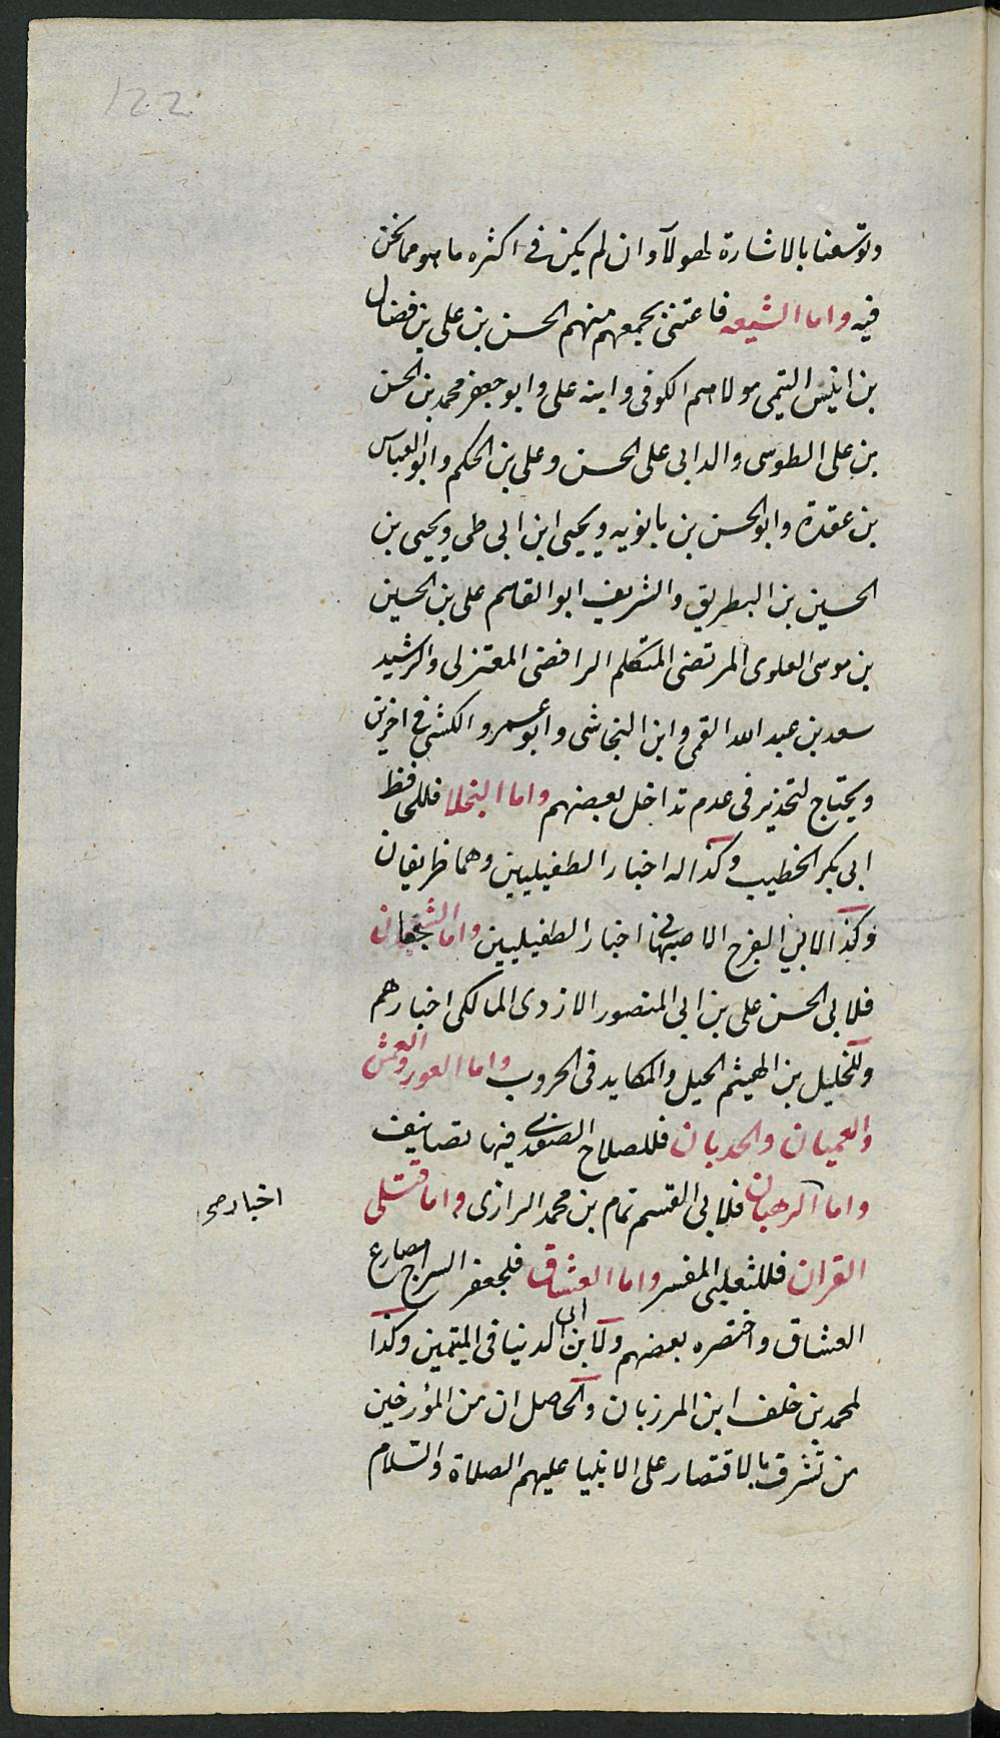 122
وتوسعنا بالاشارة لهولآ وان لم يكن في اكثره ما هو مما نحن
فيه واما الشيعه فاعتنى بجمعهم منهم الحسن بن على بن فضال
بن انيس التيمى مولاهم الكوفى وابنه على وابو جعفر محمد بن الحسن
بن على الطوسى والد ابى على الحسن وعلى بن الحكم وابو العباس
بن عقدة وابو الحسن بن بابويه ويحيى ابن ابى طى ويحيى بن
الحسين بن البطريق والشريف ابو القاسم على بن الحسين
بن موسى العلوى المرتضى المتكلم الرافضى المعتزلى والرشيد
سعد بن عبد الله القمى وابن النجاشى وابو عمرو الكشى في اخرين
ويحتاج لتحذير فى عدم تداخل بعضهم واما البخلا فللحافظ
ابى بكر الخطيب وكذا له اخبار الطفيليين وهما ظريفان
وكذا لابي الفرج الاصبهانى اخبار الطفيليين واما الشجعان
فلابى الحسن على بن ابى المنصور الازدى المالكى اخبارهم
وللخليل بن الهيثم الحيل والمكايد فى الحروب واما العور والعمش
والعميان والحدبان فللصلاح الصفدى فيها تصانيف
واما الرهبان فلابى القسم تمام بن محمد الرازى واما قتلى
اخبارهم
القران فللثعلبى المفسر واما العشاق فلجعفر السراج مصارع
العشاق واختصره بعضهم ولابن ابى الدنيا فى المتيمين وكذا
لمحمد بن خلف ابن المرزبان والحاصل ان من المؤرخين
من تشرف بالاقتصار على الانبيا عليهم الصلاة والسلام